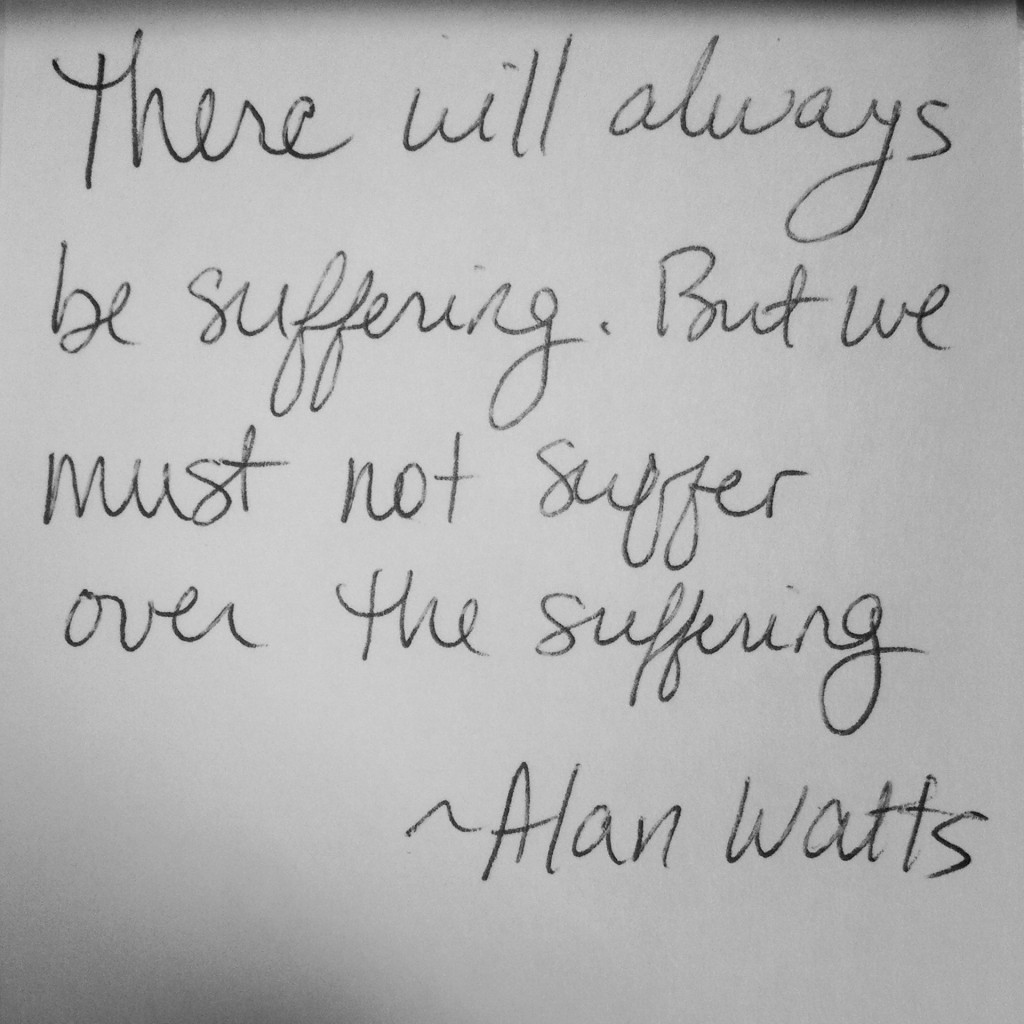 There will always
be suffering. But we
must not suffer
over the suffering
~Alan Watts